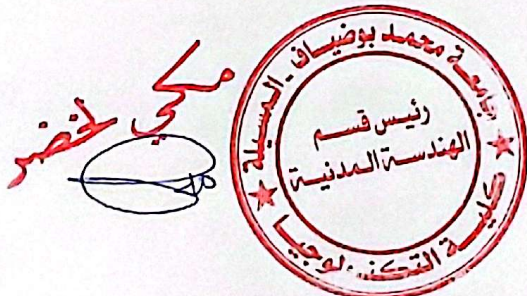 مكي لخضر
جامعة محمد بوضياف - المسيلة
رئيس قسم
الهندسة المدنية
كلية التكنولوجيا